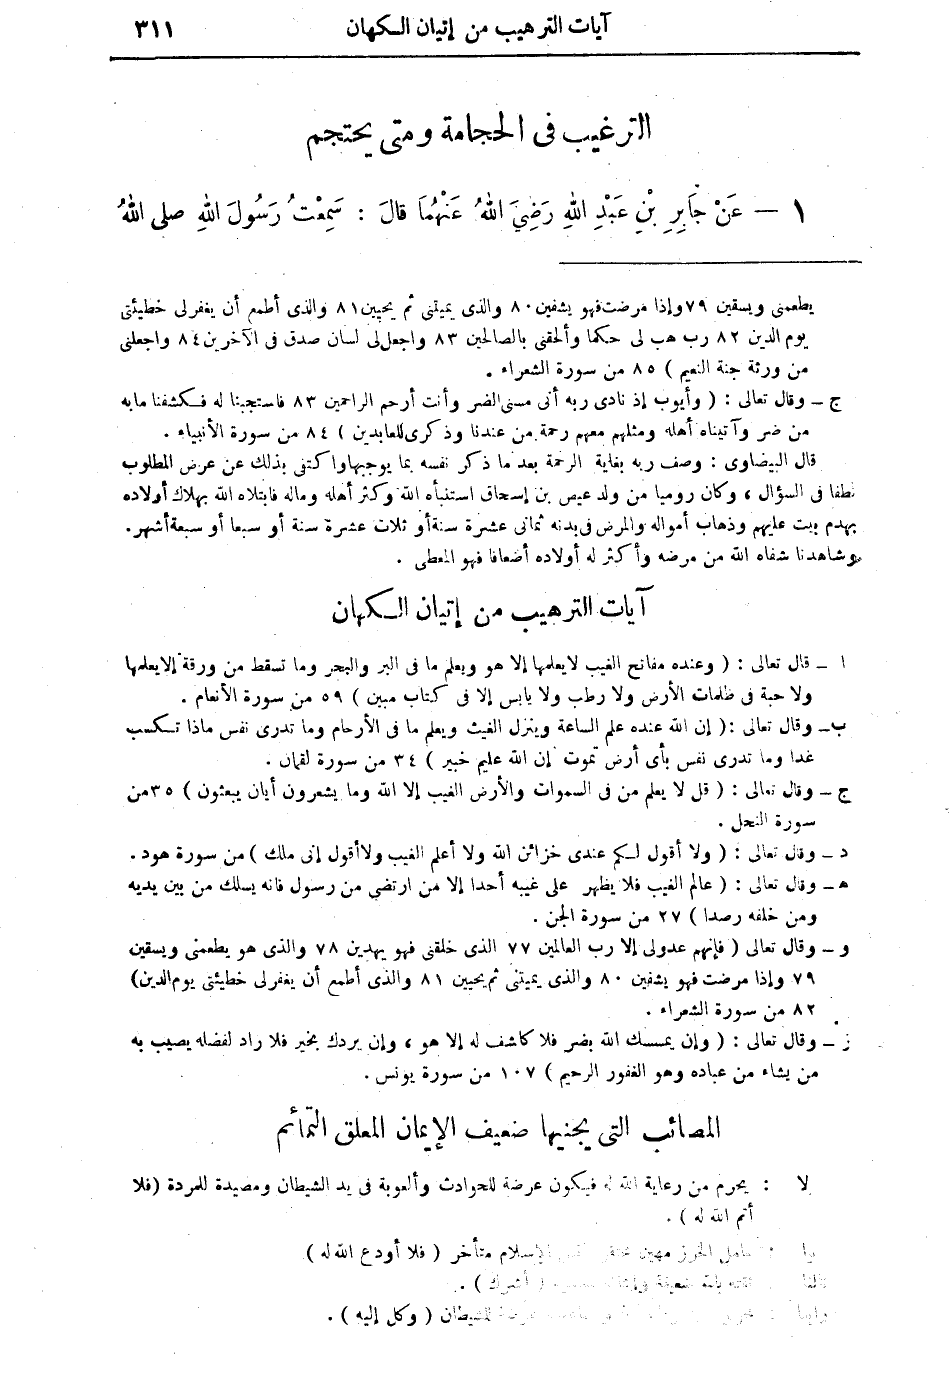 آيات الترهيب من إتيان الكهان ٣١١
الترغيب فى الحجامة ومتى يحتجم
١ — عَنْ جَابِرِ بْنِ عَبْدِ اللهِ رَضِيَ اللهُ عَنْهُمَا قالَ : سَمِعْتُ رَسُولَ اللهِ صلى اللهُ
يطعمنى ويسقين ٧٩ وإذا مرضت فهو يشفين ٨٠ والذى يميتنى ثم يحيين ٨١ والذى أطمع أن يغفر لى خطيئتى
يوم الدين ٨٢ رب هب لى حكما وألحقنى بالصالحين ٨٣ واجعل لى لسان صدق فى الآخرين ٨٤ واجعلنى
من ورثة جنة النعيم ) ٨٥ من سورة الشعراء .
ج ـ وقال تعالى : ( وأيوب إذ نادى ربه أنى مسنى الضر وأنت أرحم الراحمين ٨٣ فاستجبنا له فكشفنا مابه
من ضر وآتيناه أهله ومثلهم معهم رحمة من عندنا وذكرى للعابدين ) ٨٤ من سورة الأنبياء .
قال البيضاوى : وصف ربه بغاية الرحمة بعد ما ذكر نفسه بما يوجبها واكتفى بذلك عن عرض المطلوب
لطفا فى السؤال ، وكان روميا من ولد عيص بن إسحاق استنبأه الله وكثر أهله وماله فابتلاه الله بهلاك أولاده
بهدم بيت عليهم وذهاب أمواله والمرض فى بدنه ثمانى عشرة سنة أو ثلاث عشرة سنة أو سبعا أو سبعة أشهر.
وشاهدنا شفاه الله من مرضه وأكثر له أولاده أضعافا فهو المعطى .
آيات الترهيب من إتيان الكهان
ا ـ قال تعالى : ( وعنده مفاتح الغيب لا يعلمها إلا هو ويعلم ما فى البر والبحر وما تسقط من ورقة إلا يعلمها
ولا حبة فى ظلمات الأرض ولا رطب ولا يابس إلا فى كتاب مبين ) ٥٩ من سورة الأنعام .
ب ـ وقال تعالى :( إن الله عنده علم الساعة وينزل الغيث ويعلم ما فى الأرحام وما تدرى نفس ماذا تكسب
غدا وما تدرى نفس بأى أرض تموت إن الله عليم خبير ) ٣٤ من سورة لقمان .
ج ـ وقال تعالى : ( قل لا يعلم من فى السموات والأرض الغيب إلا الله وما يشعرون أيان يبعثون ) ٣٥ من
سورة النحل .
د ـ وقال تعالى : ( ولا أقول لكم عندى خزائن الله ولا أعلم الغيب ولا أقول إنى ملك ) من سورة هود .
هـ ـ وقال تعالى : ( عالم الغيب فلا يظهر على غيبه أحدا إلا من ارتضى من رسول فانه يسلك من بين يديه
ومن خلفه رصدا ) ٢٧ من سورة الجن .
و ـ وقال تعالى ( فإنهم عدولى إلا رب العالمين ٧٧ الذى خلقنى فهو يهدين ٧٨ والذى هو يطعمنى ويسقين
٧٩ وإذا مرضت فهو يشفين ٨٠ والذى يميتنى ثم يحيين ٨١ والذى أطمع أن يغفر لى خطيئتى يوم الدين)
٨٢ من سورة الشعراء .
ز ـ وقال تعالى : ( وإن يمسسك الله بضر فلا كاشف له إلا هو ، وإن يردك بخير فلا راد لفضله يصيب به
من يشاء من عباده وهو الغفور الرحيم ) ١٠٧ من سورة يونس .
المصائب التى يجنيها ضعيف الإيمان المعلق التمائم
لا : يحرم من رعاية الله له فيكون عرضة للحوادث وألعوبة فى يد الشيطان ومصيدة للمردة (فلا
أتم الله له ) .
يا : حامل الخرز مهين الإسلام متأخر ( فلا أودع الله له )
ضعيفة ( أشرك ) .
للشيطان ( وكل إليه ) .